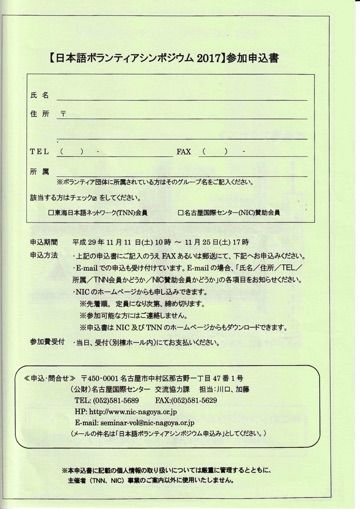 【日本語ボランティアシンポジウム 2017】参加申込書
氏 名
住 所 〒
TEL ( ) - FAX ( ) -
所 属
※ボランティア団体に所属されている方はそのグループ名をご記入ください。
該当する方はチェック☑をしてください。
□東海日本語ネットワーク(TNN)会員 □名古屋国際センター(NIC)賛助会員
申込期間 平成 29 年 11 月 11 日(土)10 時 ～ 11 月 25 日(土)17 時
申込方法 ・上記の申込書にご記入のうえ FAX あるいは郵送にて、下記へお申込みください。
・E-mail での申込も受け付けています。E-mail の場合、「氏名／住所／TEL／
所属／TNN会員かどうか／NIC賛助会員かどうか」の各項目をお知らせください。
・NIC のホームページからも申し込みできます。
※先着順。定員になり次第、締め切ります。
※参加可能な方にはご連絡しません。
※申込書は NIC 及び TNN のホームページからもダウンロードできます。
参加費受付 ・当日、受付(別棟ホール内)にてお支払いください。
≪申込・問合せ≫ 〒450-0001 名古屋市中村区那古野一丁目 47 番 1 号
(公財)名古屋国際センター 交流協力課 担当:川口、加藤
TEL: (052)581-5689 FAX:(052)581-5629
HP: http://www.nic-nagoya.or.jp
E-mail: seminar-vol@nic-nagoya.or.jp
(メールの件名は「日本語ボランティアシンポジウム申込み」としてください。)
※本申込書に記載の個人情報の取り扱いについては厳重に管理するとともに、
主催者(TNN、NIC)事業のご案内以外に使用いたしません。